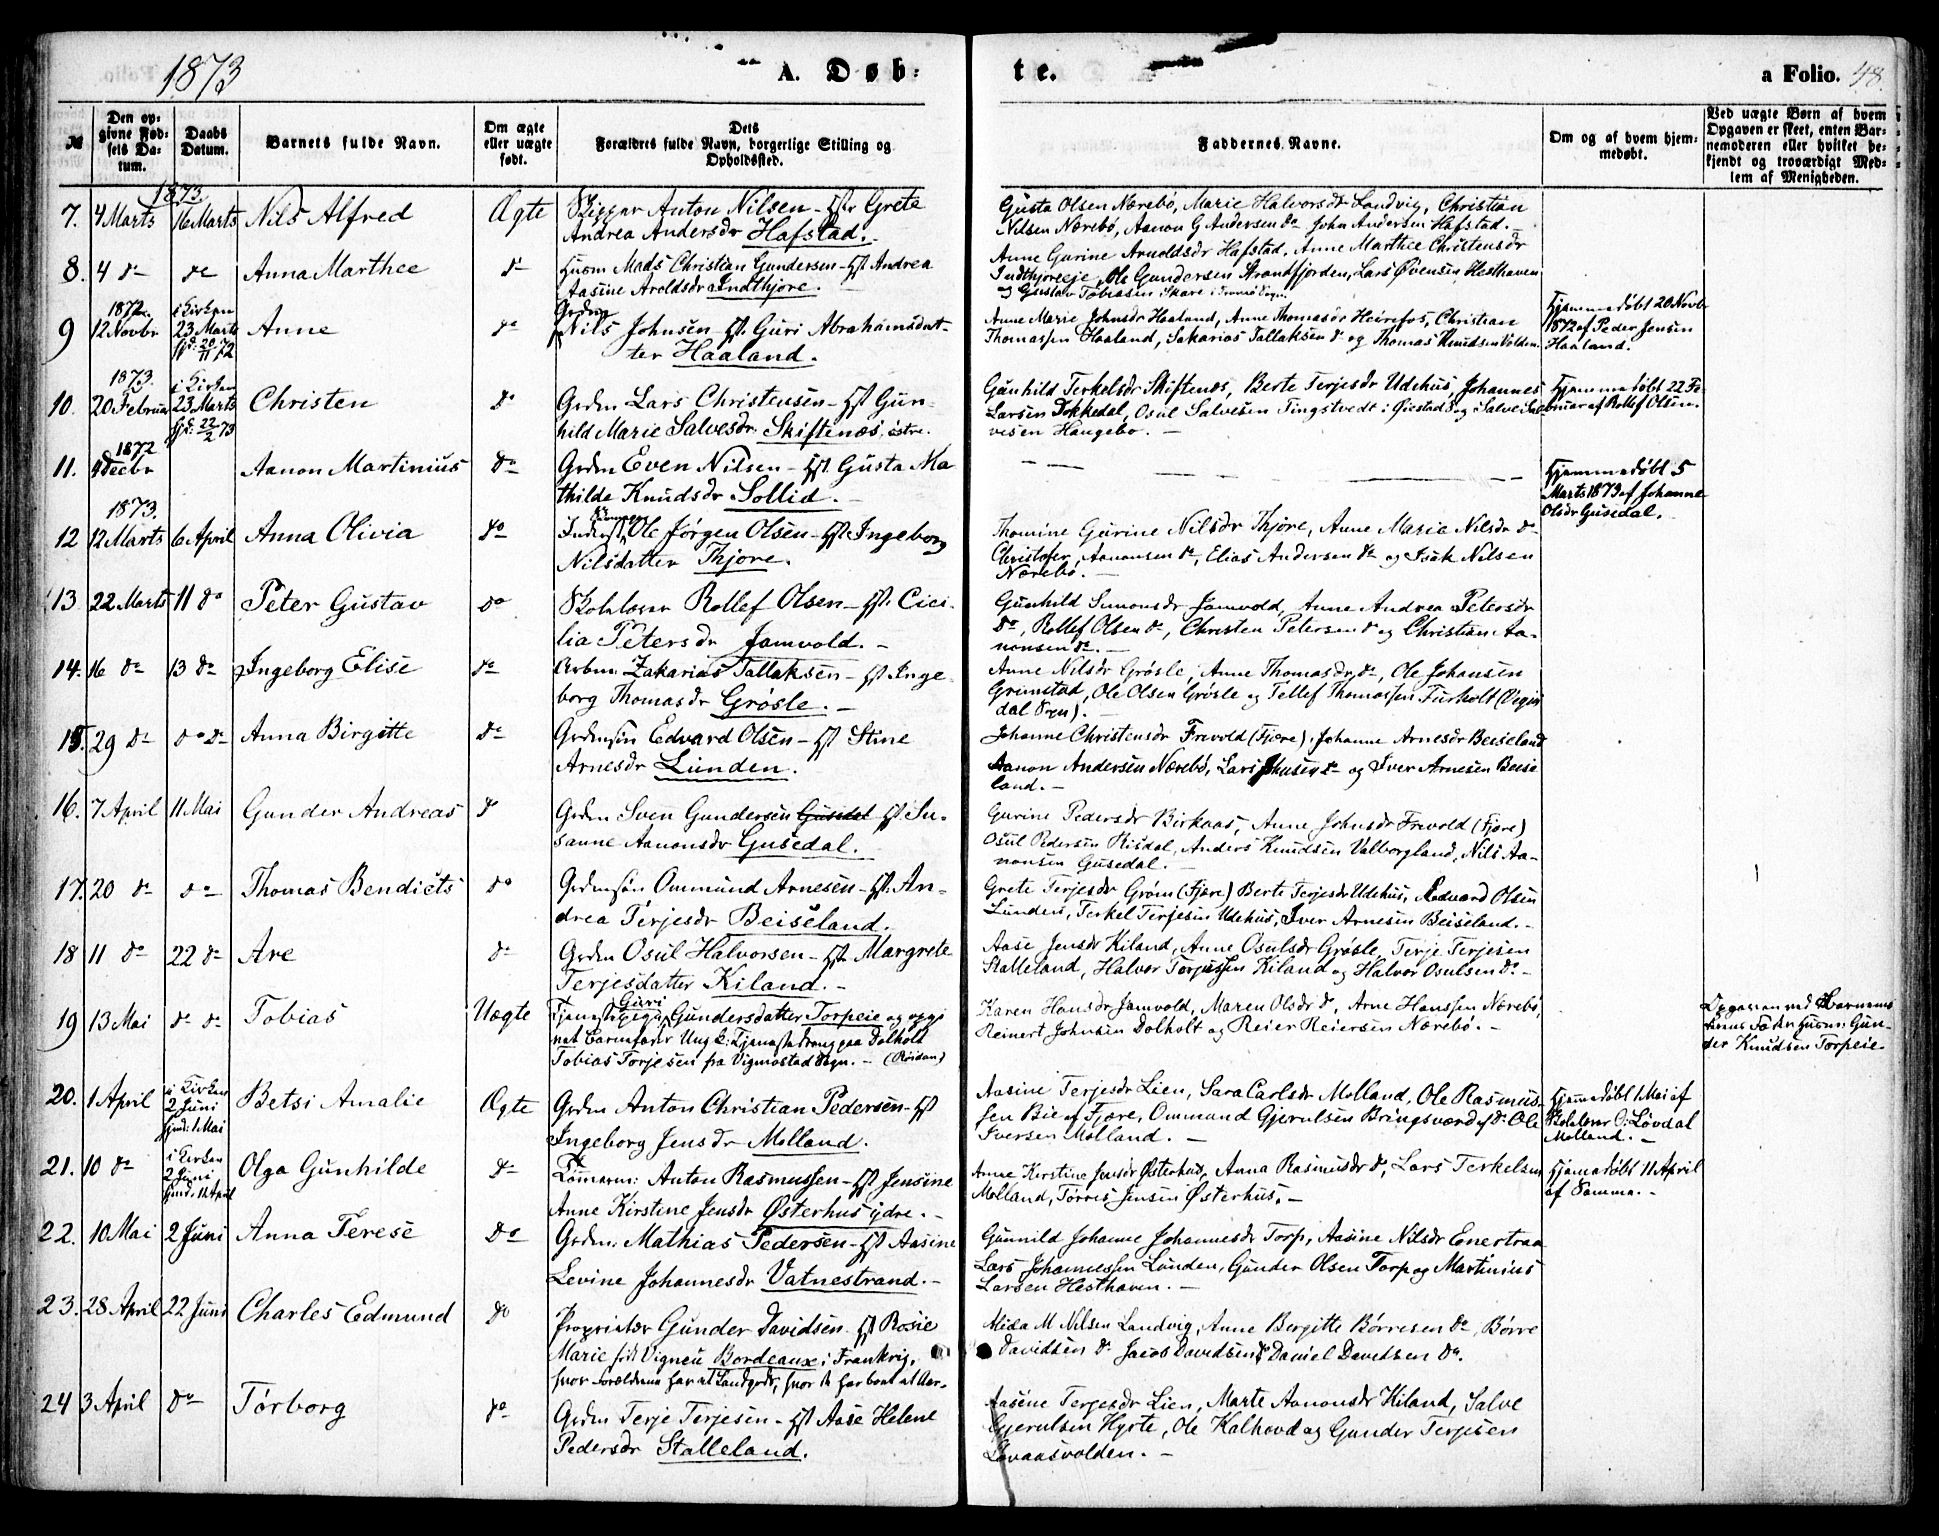 1873
A. Døb-
te.
a Folio. 48.
№
Den op-
givne Fød-
sels Da-
tum.
Daabs
Datum.
Barnets fulde Navn.
Om ægte
eller uægte
født.
Dets
Forældres fulde Navn, borgerlige Stilling og
Opholdssted.
Faddernes Navne.
Om og af hvem hjem-
medøbt.
Ved uægte Børn af hvem
Opgaven er skeet, enten Bar-
nemoderen eller hvilket be-
kjendt og troværdigt Med-
lem af Menigheden.
1873
7. 4 Marts 16 Marts Nils Alfred Ægte Skipper Anton Nilsen - Hst Grete
Andrea Andersdr Hafstad. -
Gusta Olsen Nærebø, Marie Halvorsdr Landvig, Christian
Nilsen Nærebø, Aanon G Andersen do John Andersen Hafstad. -
8. 4 do do Anna Marthee do Husm Mads Christian Gundersen - Hst Andrea
Aasine Aroldsdr Indthjore.
Anne Gurine Arnoldsdr Hafstad, Anne Marthee Christensdr
Indthjoreeje, Ole Gundersen Strandfjorden, Lars Øvensen Hesthaven
og Gustav Tobiasen Skare i Tromø Sogn.
9 1872 12 Novbr i Kirken 23 Marts hjd: 20/11 72 Anne do Grdm
Nils Johnsen - Hst. Guri Abrahamsdat-
ter Haaland.
Anne Marie Johnsdr Haaland, Anne Thomasdr Heirefos, Christian
Thomassen Haaland, Sakarias Tallaksen do og Thomas Knudsen Volden.
Hjemmedøbt 20 Novbr
1872 af Peder Jensen
Haaland.
10. 1873. 20 Februar i Kirken 23 Marts hjd: 22/2 73 Christen do Grdm Lars Christensen - Hst Gun-
hild Marie Salvesdr Skiftenæs østre.
Gunhild Terkelsdr Skiftenæs, Berte Terjesdr Udehus, Johannes
Larsen Dokkedal, Osul Salvesen Tingstvedt i Øiestad S og Salve Sal-
vesen Haugebo. -
Hjemmedøbt 22 Fe-
bruar af Rollef Olsen.
11. 1872 4 Decbr Aanon Martinius do Grdm Even Nilsen - Hst Gusta Ma
thilde Knudsdr Sollid. -
Hjemmedøbt 5
Marts 1873 af Johanne
Olsdr Gusedal.
12 1873. 12 Marts 6 April Anna Olivia do Inderst Ole Jørgen Olsen - Hst Ingeborg
Nilsdatter Thjore.
Thomine Gurine Nilsdr Thjore, Anne Marie Nilsdr do
Christofer Aanonsen do, Elias Andersen do og Isak Nilsen
Nærebø. -
13 22 Marts 11 do Peter Gustav do Skolelærer Rollef Olsen - Hst. Cici-
lia Petersdr Jamvold. -
Gunhild Simonsdr Jamvold, Anne Andrea Petersdr
do, Rollef Olsen do, Christen Petersen do og Christian Aa-
nonsen do. -
14. 16 do 13 do Ingeborg Elise do Arbm. Zakarias Tallaksen - Hst Inge
borg Thomasdr Grøsle. -
Anne Nilsdr Grøsle, Anne Thomasdr do, Ole Johansen
Grimstad, Ole Olsen Grøsle og Tellef Thomassen Furholt (Vegus
dal Sogn). -
15. 29 do do do Anna Birgitte do Grdmsøn Edvard Olsen - Hst Stine
Arnesdr Lunden.
Johanne Christensdr Frevold (Fjære), Johanne Arnesdr Beiseland
Aanon Andersen Nærebø, Lars do og Iver Arnesen Beise
land. -
16. 7 April 11 Mai Gunder Andreas do Grdm Sven Gundersen Gusedal Hst Su-
sanne Aanonsdr Gusedal.
Gurine Pedersdr Birkaas, Anne Johnsdr Frevold (Fjære)
Osul Pedersen Risdal, Anders Knudsen Valborgland, Nils Aa-
nonsen Gusedal. -
17. 20 do do Thomas Bendicts do Grdmsøn Ommund Arnesen - Hst. An-
drea Terjesdr Beiseland.
Grete Terjesdr Grøm (Fjære) Berte Terjesdr Udehus, Edvard Olsen
Lunden, Terkel Terjesen Udehus, Iver Arnesen Beiseland. -
18 11 do 22 do Are do Grdm Osul Halvorsen - Hst Margrete
Terjesdatter Kiland. -
Aase Jensdr Kiland, Anne Osulsdr Grøsle, Terje Terjesen
Stalleland, Halvor Terjessen Kiland og Halvor Osulsen do -
19 13 Mai do do Tobias Uægte Tjenestepige Guri Gundersdatter Torpeie og opgi
net Barnefader Ung k: Tjenestedreng paa Dolholt
Tobias Torjesen fra Vigmostad Sogn. -
Karen Hansdr Jamvold, Maren Olsdr do, Arne Hanssen Nærebø,
Reinert Johnsen Dolholt og Reier Reiersen Nærebø. -
Opgaven ved Barnemo
derens Fader Husm. Gun-
der Knudsen Torpeie
20. 1 April i Kirken 2 Juni hjmd: 1 Mai Betsi Amalie Ægte Grdm Anton Christian Pedersen - Hst
Ingeborg Jensdr Molland.
Aasine Terjesdr Lien, Sara Carlsdr Molland, Ole Rasmus-
sen Bie af Fjære, Ommund Gjerulsen Bringsværd af do Ole
Iversen Molland. -
Hjemmedøbt 1 Mai af
Skolelærer O: Løvdal
Molland. -
21. 10 do i Kirken 2 Juni hjmd. 11 April Olga Gunhilde do Tømmerm: Anton Rasmussen - Hst Jensine
Anne Kirstine Jensdr Østerhus ydre. -
Anne Kirstine Jensdr Østerhus, Anna Rasmusdr do, Lars Terkelsen
Molland, Tørres Jensen Østerhus. -
Hjemmedøbt 11 April
af Samme. -
22. 10 Mai 2 Juni Anna Terese do Grdm: Mathias Pedersen - Hst Aasine
Levine Johannesdr Vatnestrand. -
Gunnild Johanne Johannesdr Torp, Aasine Nilsdr Enertraa
Lars Johannessen Lunden, Gunder Olsen Torp og Martinius
Larsen Hesthaven. -
23. 28 April 22 Juni Charles Edmund do Proprietær Gunder Davidsen Hst Rosie
Marie født Vigneu Bordeaux i Frankrig,
hvor Forældrene har et Landgods, hvor de har boet et Aar. -
Alida M Nilsen Landvig, Anne Birgitte Børresen do, Børre
Davidsen do Jacob Davidsen do Daniel Davidsen do.
24 3 April do Tørborg do Grdm Terje Terjesen - Hst Aase Helene
Pedersdr Stalleland.
Aasine Terjesdr Lien, Marte Aanonsdr Kiland, Salve
Gjerulsen Hyrte, Ole Kalhovd og Gunder Terjesen
Løvaasvolden. -